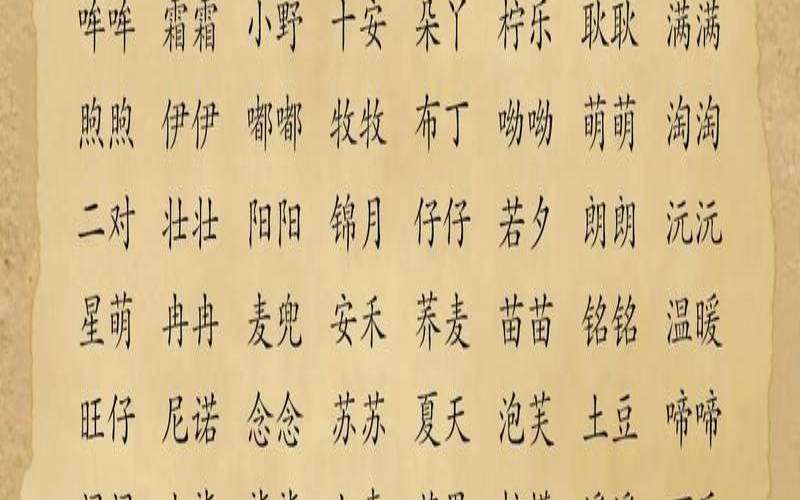 哞哞 霜霜 小野 十安 朵丫 柠乐 耿耿 满满
煦煦 伊伊 嘟嘟 牧牧 布丁 呦呦 萌萌 淘淘
二对 壮壮 阳阳 锦月 仔仔 若夕 朗朗 沅沅
星萌 冉冉 麦兜 安禾 荞麦 苗苗 铭铭 温暖
旺仔 尼诺 念念 苏苏 夏天 泡芙 土豆 啼啼